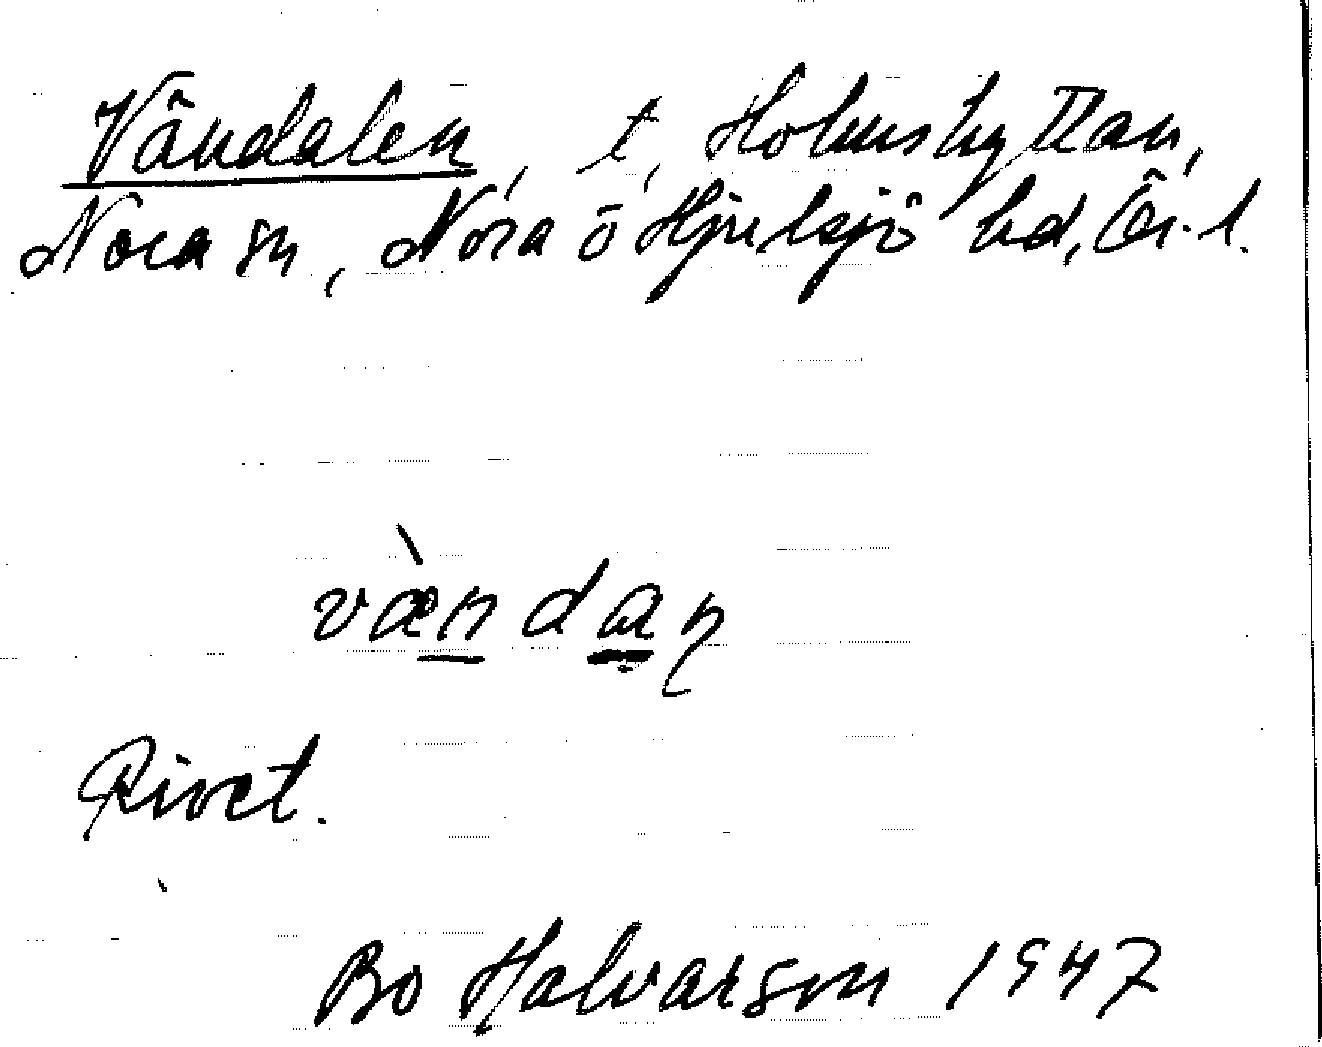 Vändalen, t. Holmshyttan,
Nora sn, Nora ō Hjulsjö bd, Ör. l.
væ̀ndaɳ
Rivet.
Bo Halvarson 1947